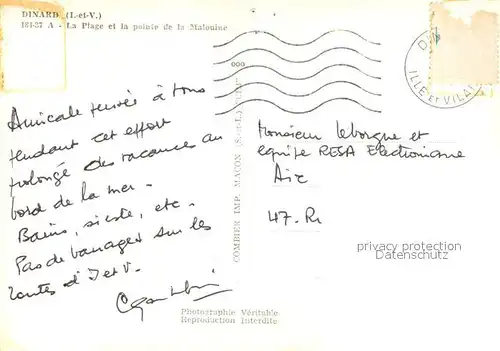 DINARD (I.-et-V.)
181-37 A - La Plage et la pointe de la Malouine
DIN
ILLE ET VILAINE
Amicale pensée à tous
pendant cet effort
prolongé des vacances au
bord de la mer.
Bains, sieste, etc.
Pas de barrages sur les
routes d'I et V.
Monsieur Leborgne et
equipe RESA Electronique
Air
47. R
COMBIER IMP. MACON (S.-et-L.)
privacy protection
Datenschutz
Photographie Véritable
Reproduction Interdite